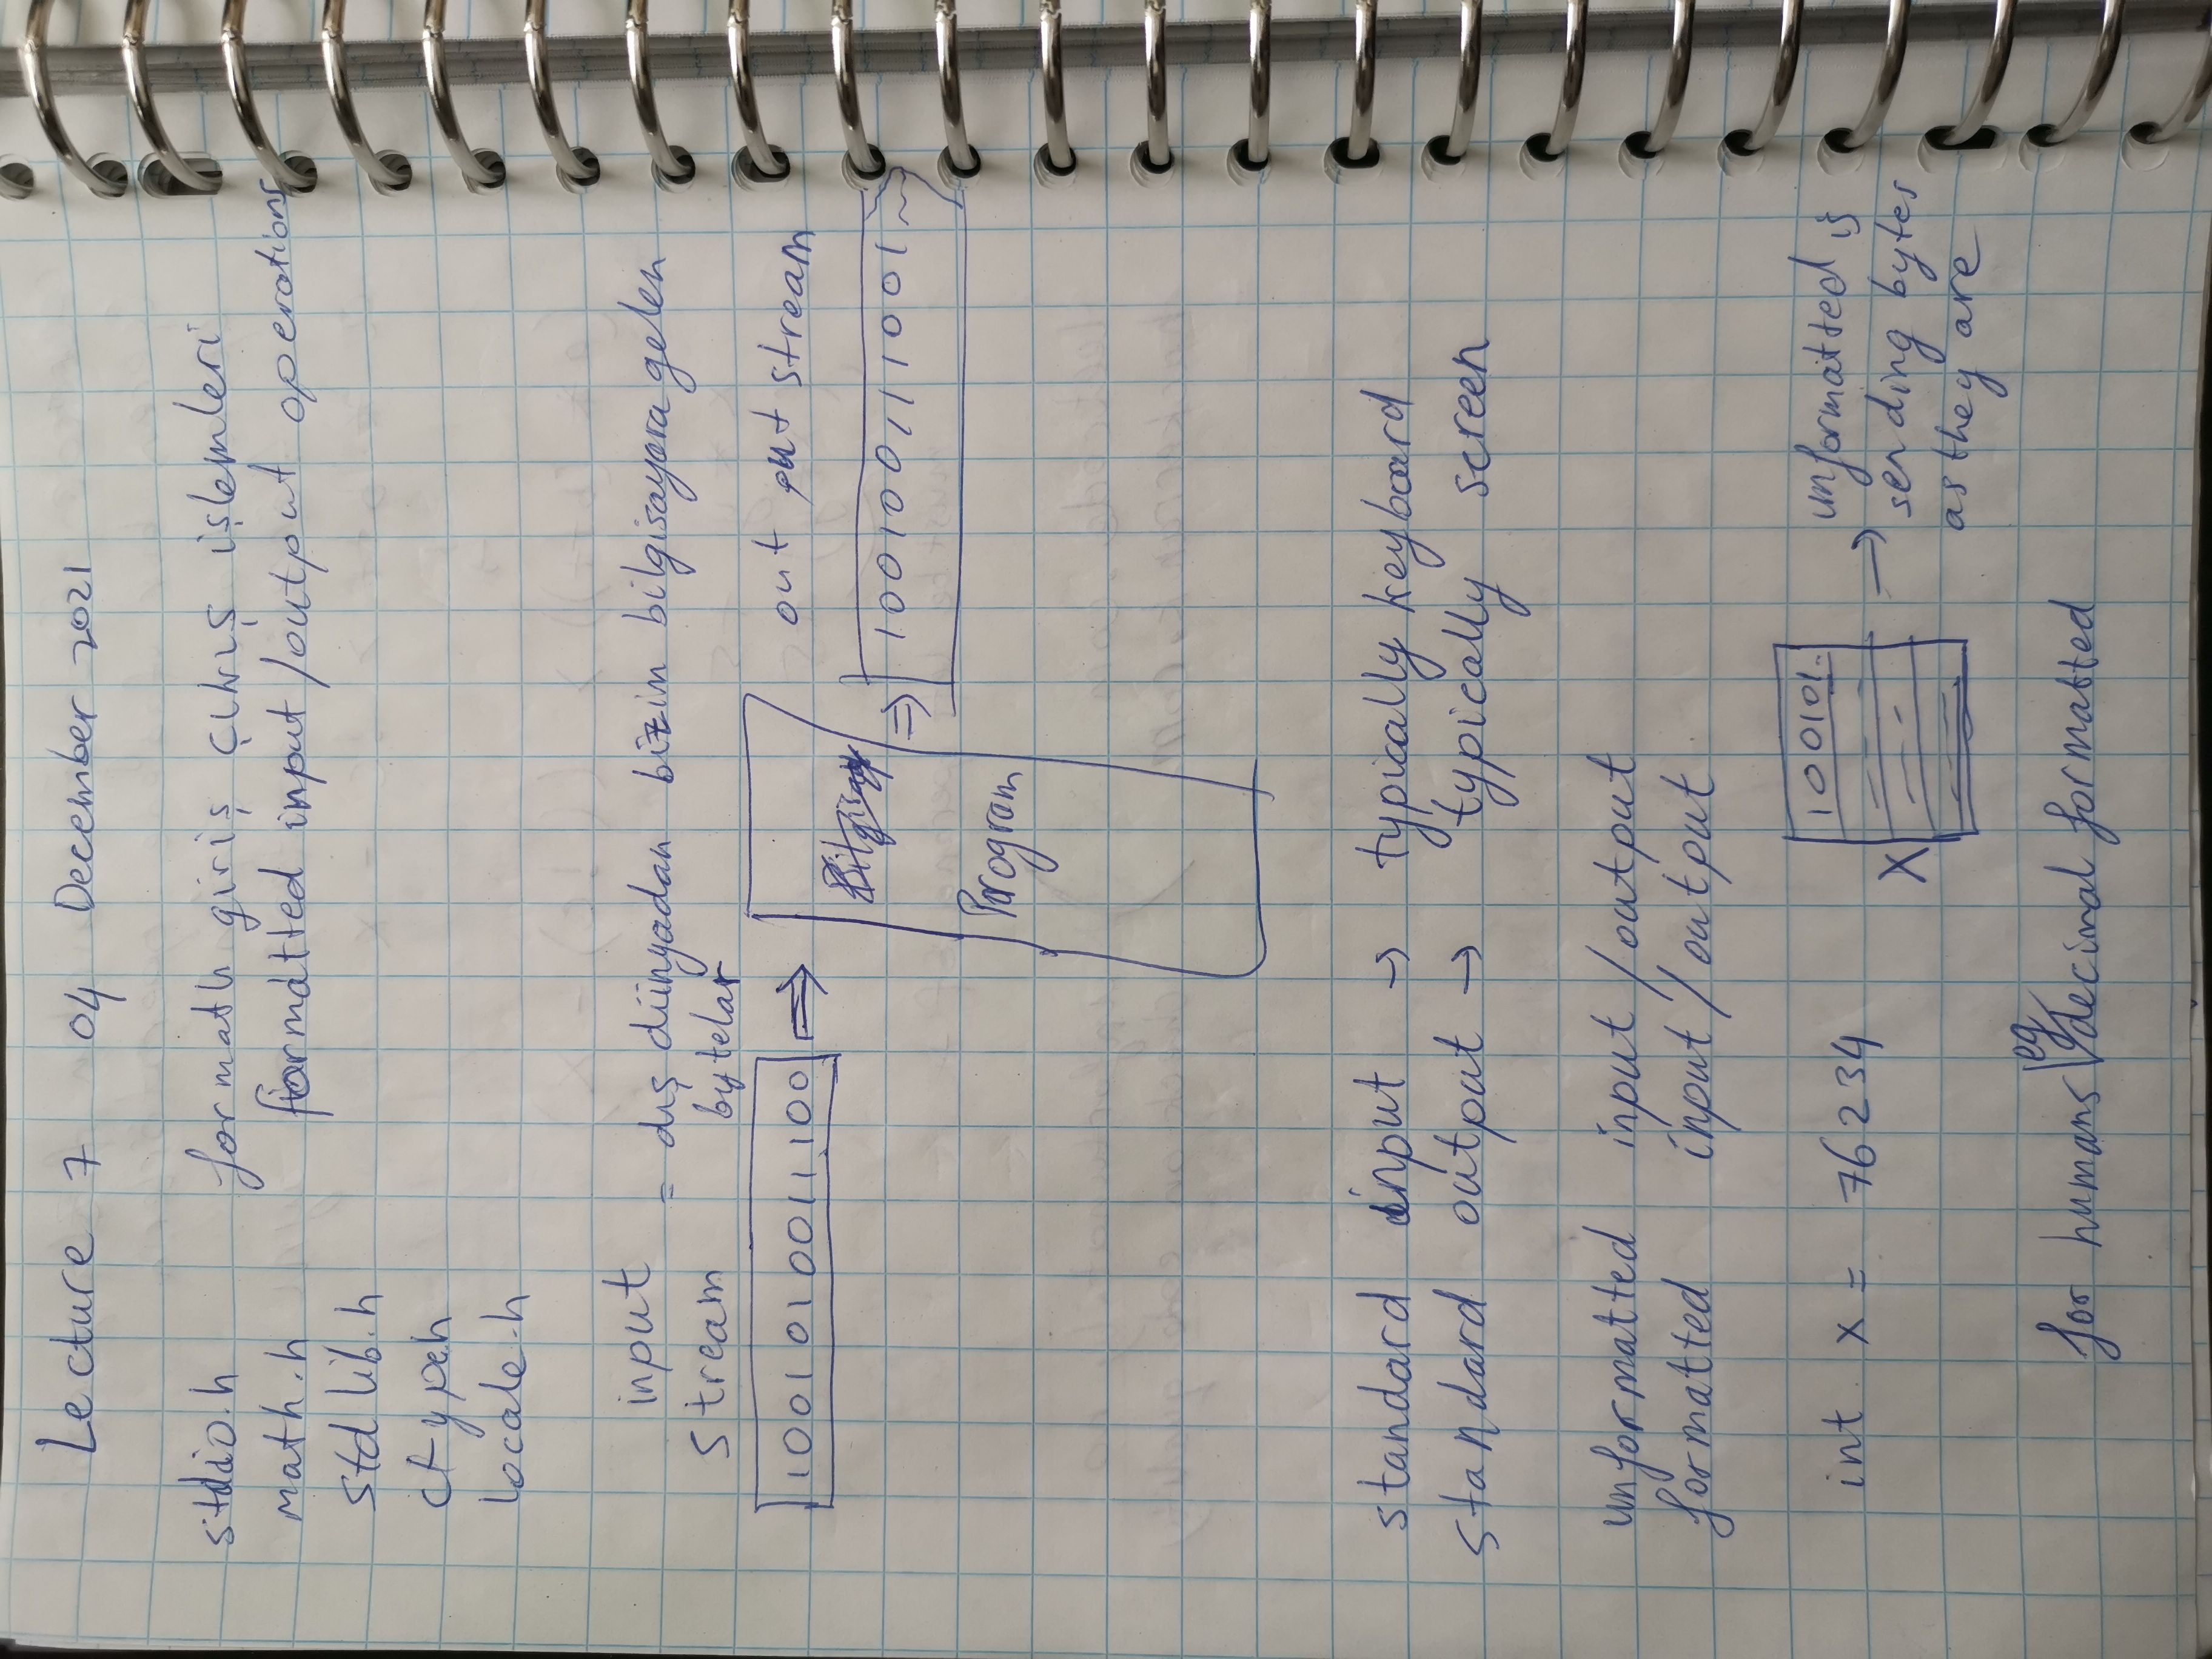 Lecture 7 04 December 2021
stdio.h formatlı giriş çıkış işlemleri
math.h formatted input/output operations
stdlib.h
ctype.h
locale.h
input
stream = dış dünyadan bizim bilgisayara gelen
bytelar
1001010011100 ⇒
output stream
⇒ 100100111001
Program
standard input → typically keyboard
standard output → typically screen
unformatted input/output
formatted input/output
int x = 76234
X 100101..
→ unformatted is
sending bytes
as they are
for humans eg decimal formatted